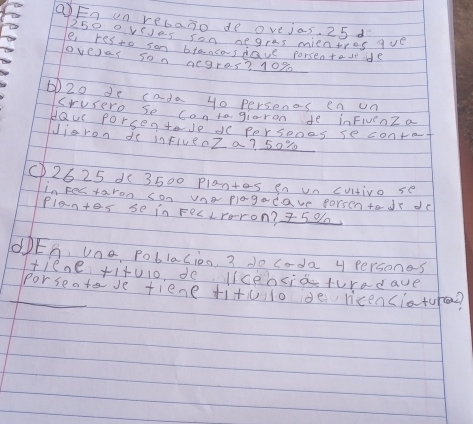 a) En un rebaño de ovejas. 25 d
250 ovejas son negras mientras que
el resto son blancas dave porsentaje de
ovejas son negras? 10%
b) 20 de cada 40 Personas en un
crusero se contagiaron de infivenza
dave porsentaje de Personas se conta-
jiaron de infivenza? 50%
c) 2625 de 3500 Plantas en un cultivo se
infectaron con una plaga dave porsentade de
Plantas se infectaron? 75%
d) En una Poblacion 3 de cada 4 Personas
tiene titulo de licensiatura dave
Porsentaje tiene titulo de licenciatura?